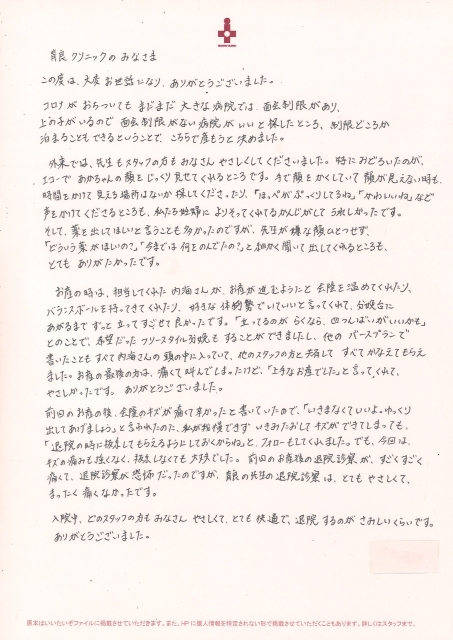 育良クリニックの みなさま
この度は、大変 お世話になり、ありがとうございました。
コロナが おちついても まだまだ 大きな病院では 面会制限があり、
上の子がいるので 面会制限がない病院がいいと探したところ、制限どころか
泊まることもできるということで、こちらで産もうと決めました。
外来では、先生もスタッフの方も みなさん やさしくしてくださいました。特におどろいたのが、
エコーで あかちゃんの顔を じっくり見せてくれるところです。手で顔をかくしていて 顔が見えない時も、
時間をかけて 見える場所はないか 探してくださったり、「ほっぺがぷっくりしてるね」「かわいいね」など
声をかけてくださるところも、私たち夫婦に よりそってくれてるかんじがして うれしかったです。
そして、薬を出してほしいと言うことも多かったのですが、先生が嫌な顔ひとつせず、
「どういう薬がほしいの?」「今までは 何をのんでたの?」と細かく聞いて出してくれるところも、
とても ありがたかったです。
お産の時は、担当してくれた 内海さんが、お産が進むようたと 会陰を温めてくれたり、
バランスボールを持ってきてくれたり、好きな体勢でいていいと言ってくれて、分娩台に
あがるまで ずっと 立って すごせて 良かったです。「立ってるのが らくなら、四つんばいがいいかも」
とのことで、希望だった フリースタイル分娩も することができましたし、他の バースプランで
書いたことも すべて内海さんの 頭の中に入っていて、他のスタッフの方と 共有して すべて かなえてもらえ
ました。お産の最後の方は、痛くて叫んでしまったけど、「上手なお産でした」と言ってくれて、
やさしかったです。ありがとうございました。
前回のお産の後、会陰のキズが痛くて辛かったと書いていたので、「いきまなくていいよ。ゆっくり
出してあげましょう」と言われたのた、私が我慢できず いきみたおして キズができてしまっても、
「退院の時に抜糸してもらえるようにしておくからね」と、フォローもしてくれました。でも、今回は、
キズの痛みも強くなく、抜糸しなくても 大丈夫でした。前回のお産後の退院診察が、すごくすごく
痛くて、退院診察が恐怖だったのですが、育良の先生の退院診察は、とても やさしくて、
まったく 痛くなかったです。
入院中、どのスタッフの方も みなさん やさしくて、とても 快適で、退院するのが さみしいくらいです。
ありがとうございました。
原本はいいたいぞファイルに掲載させていただきます。また、HPに個人情報を特定されない形で掲載させていただくこともあります。詳しくはスタッフまで。